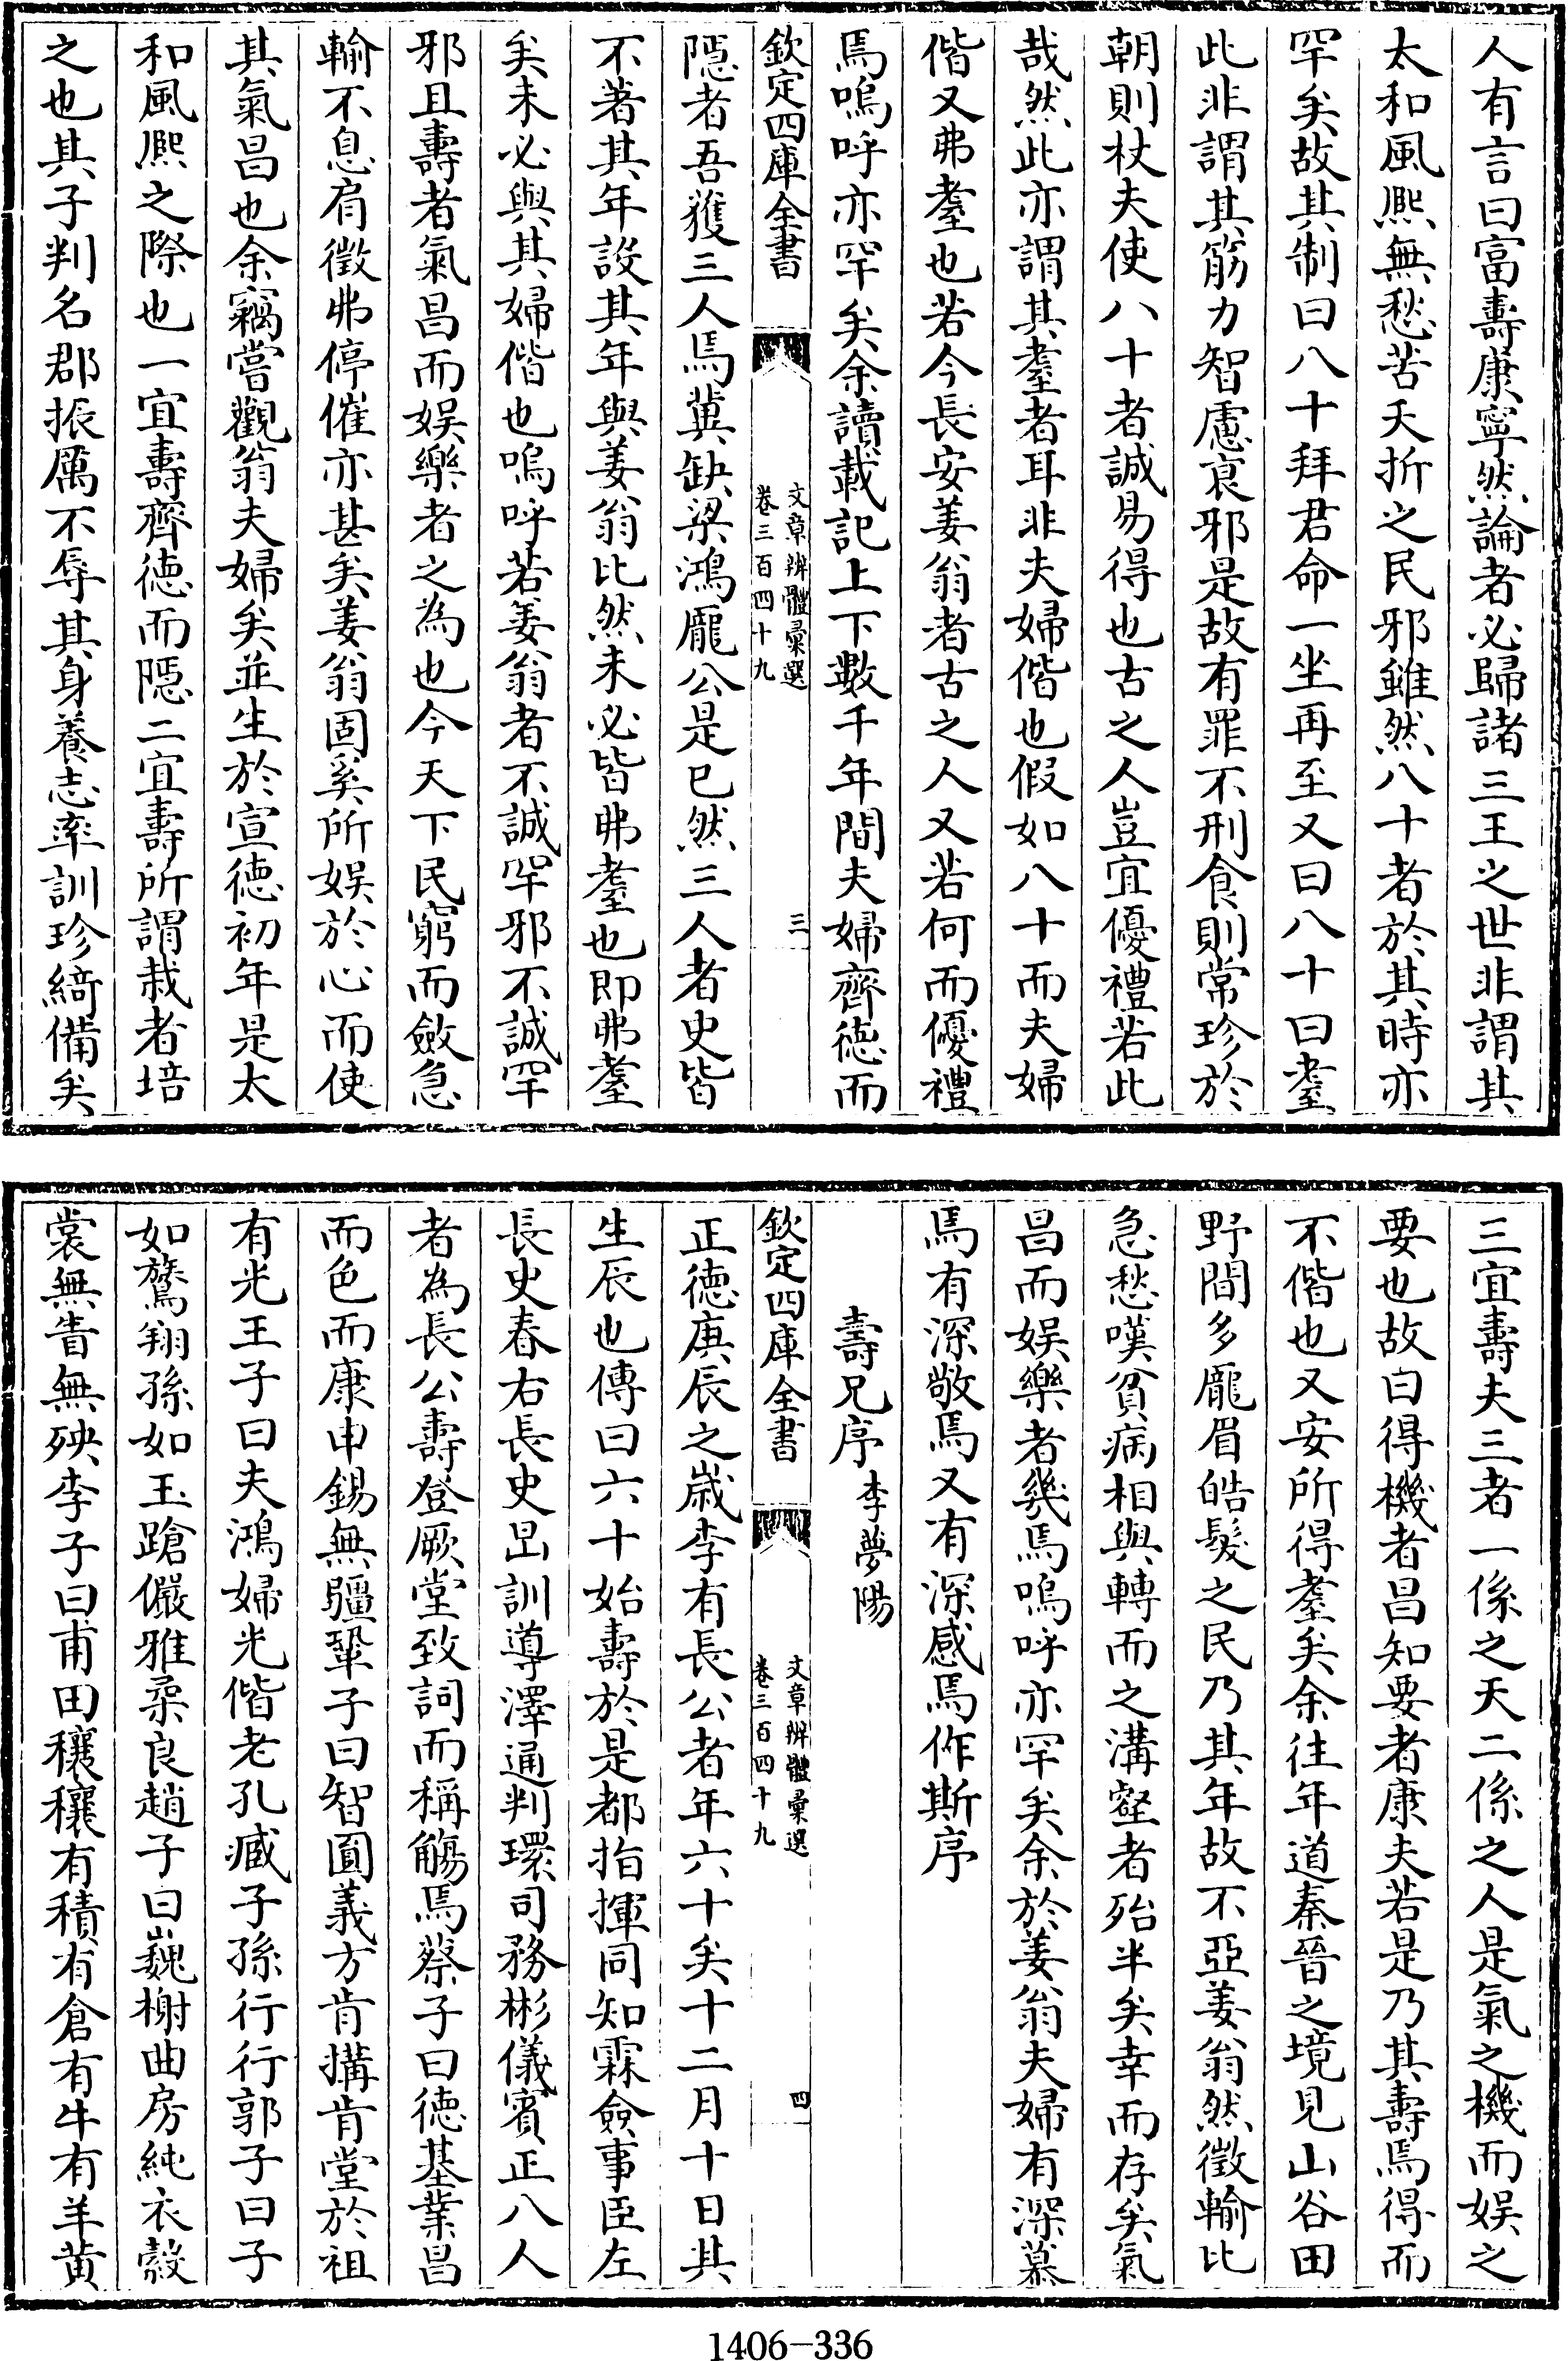 人有言曰富壽康寧然論者必歸諸三王之世非謂其
太和風熈無愁苦夭折之民邪雖然八十者於其時亦
罕矣故其制曰八十拜君命一坐再至又曰八十曰耋
此非謂其筋力智慮衰邪是故有罪不刑食則常珍於
朝則杖夫使八十者誠易得也古之人豈宜優禮若此
哉然此亦謂其耋者耳非夫婦偕也假如八十而夫婦
偕又弗耋也若今長安姜翁者古之人又若何而優禮
焉嗚呼亦罕矣余讀載記上下數千年間夫婦齊徳而
欽定四庫全書
文章辨體彚選
卷三百四十九
三
隱者吾獲三人焉冀缺梁鴻龎公是已然三人者史皆
不著其年設其年與姜翁比然未必皆弗耋也即弗耋
矣未必與其婦偕也嗚呼若姜翁者不誠罕邪不誠罕
邪且壽者氣昌而娱樂者之為也今天下民窮而斂急
輸不息肩徵弗停催亦甚矣姜翁固奚所娱於心而使
其氣昌也余竊嘗觀翁夫婦矣並生於宣徳初年是太
和風熈之際也一宜壽齊徳而隱二宜壽所謂栽者培
之也其子判名郡振厲不辱其身養志率訓珍綺備矣
三宜壽夫三者一係之天二係之人是氣之機而娱之
要也故曰得機者昌知要者康夫若是乃其壽焉得而
不偕也又安所得耋矣余往年道秦晉之境見山谷田
野間多龎眉皓髮之民乃其年故不亞姜翁然徵輸比
急愁嘆貧病相與轉而之溝壑者殆半矣幸而存矣氣
昌而娱樂者幾焉嗚呼亦罕矣余於姜翁夫婦有深慕
焉有深敬焉又有深感焉作斯序
壽兄序 李夢陽
欽定四庫全書
文章辨體彚選
卷三百四十九
四
正徳庚辰之歲李有長公者年六十矣十二月十日其
生辰也傳曰六十始壽於是都指揮同知霖僉事臣左
長史春右長史昱訓導澤通判環司務彬儀賓正八人
者為長公壽登厥堂致詞而稱觴焉蔡子曰徳基業昌
而色而康申錫無疆鞏子曰智圓義方肯搆肯堂於祖
有光王子曰夫鴻婦光偕老孔臧子孫行行郭子曰子
如鶱翔孫如玉蹌儼雅柔良趙子曰巍榭曲房純衣縠
裳無眚無殃李子曰甫田穰穰有積有倉有牛有羊黄
1406-336